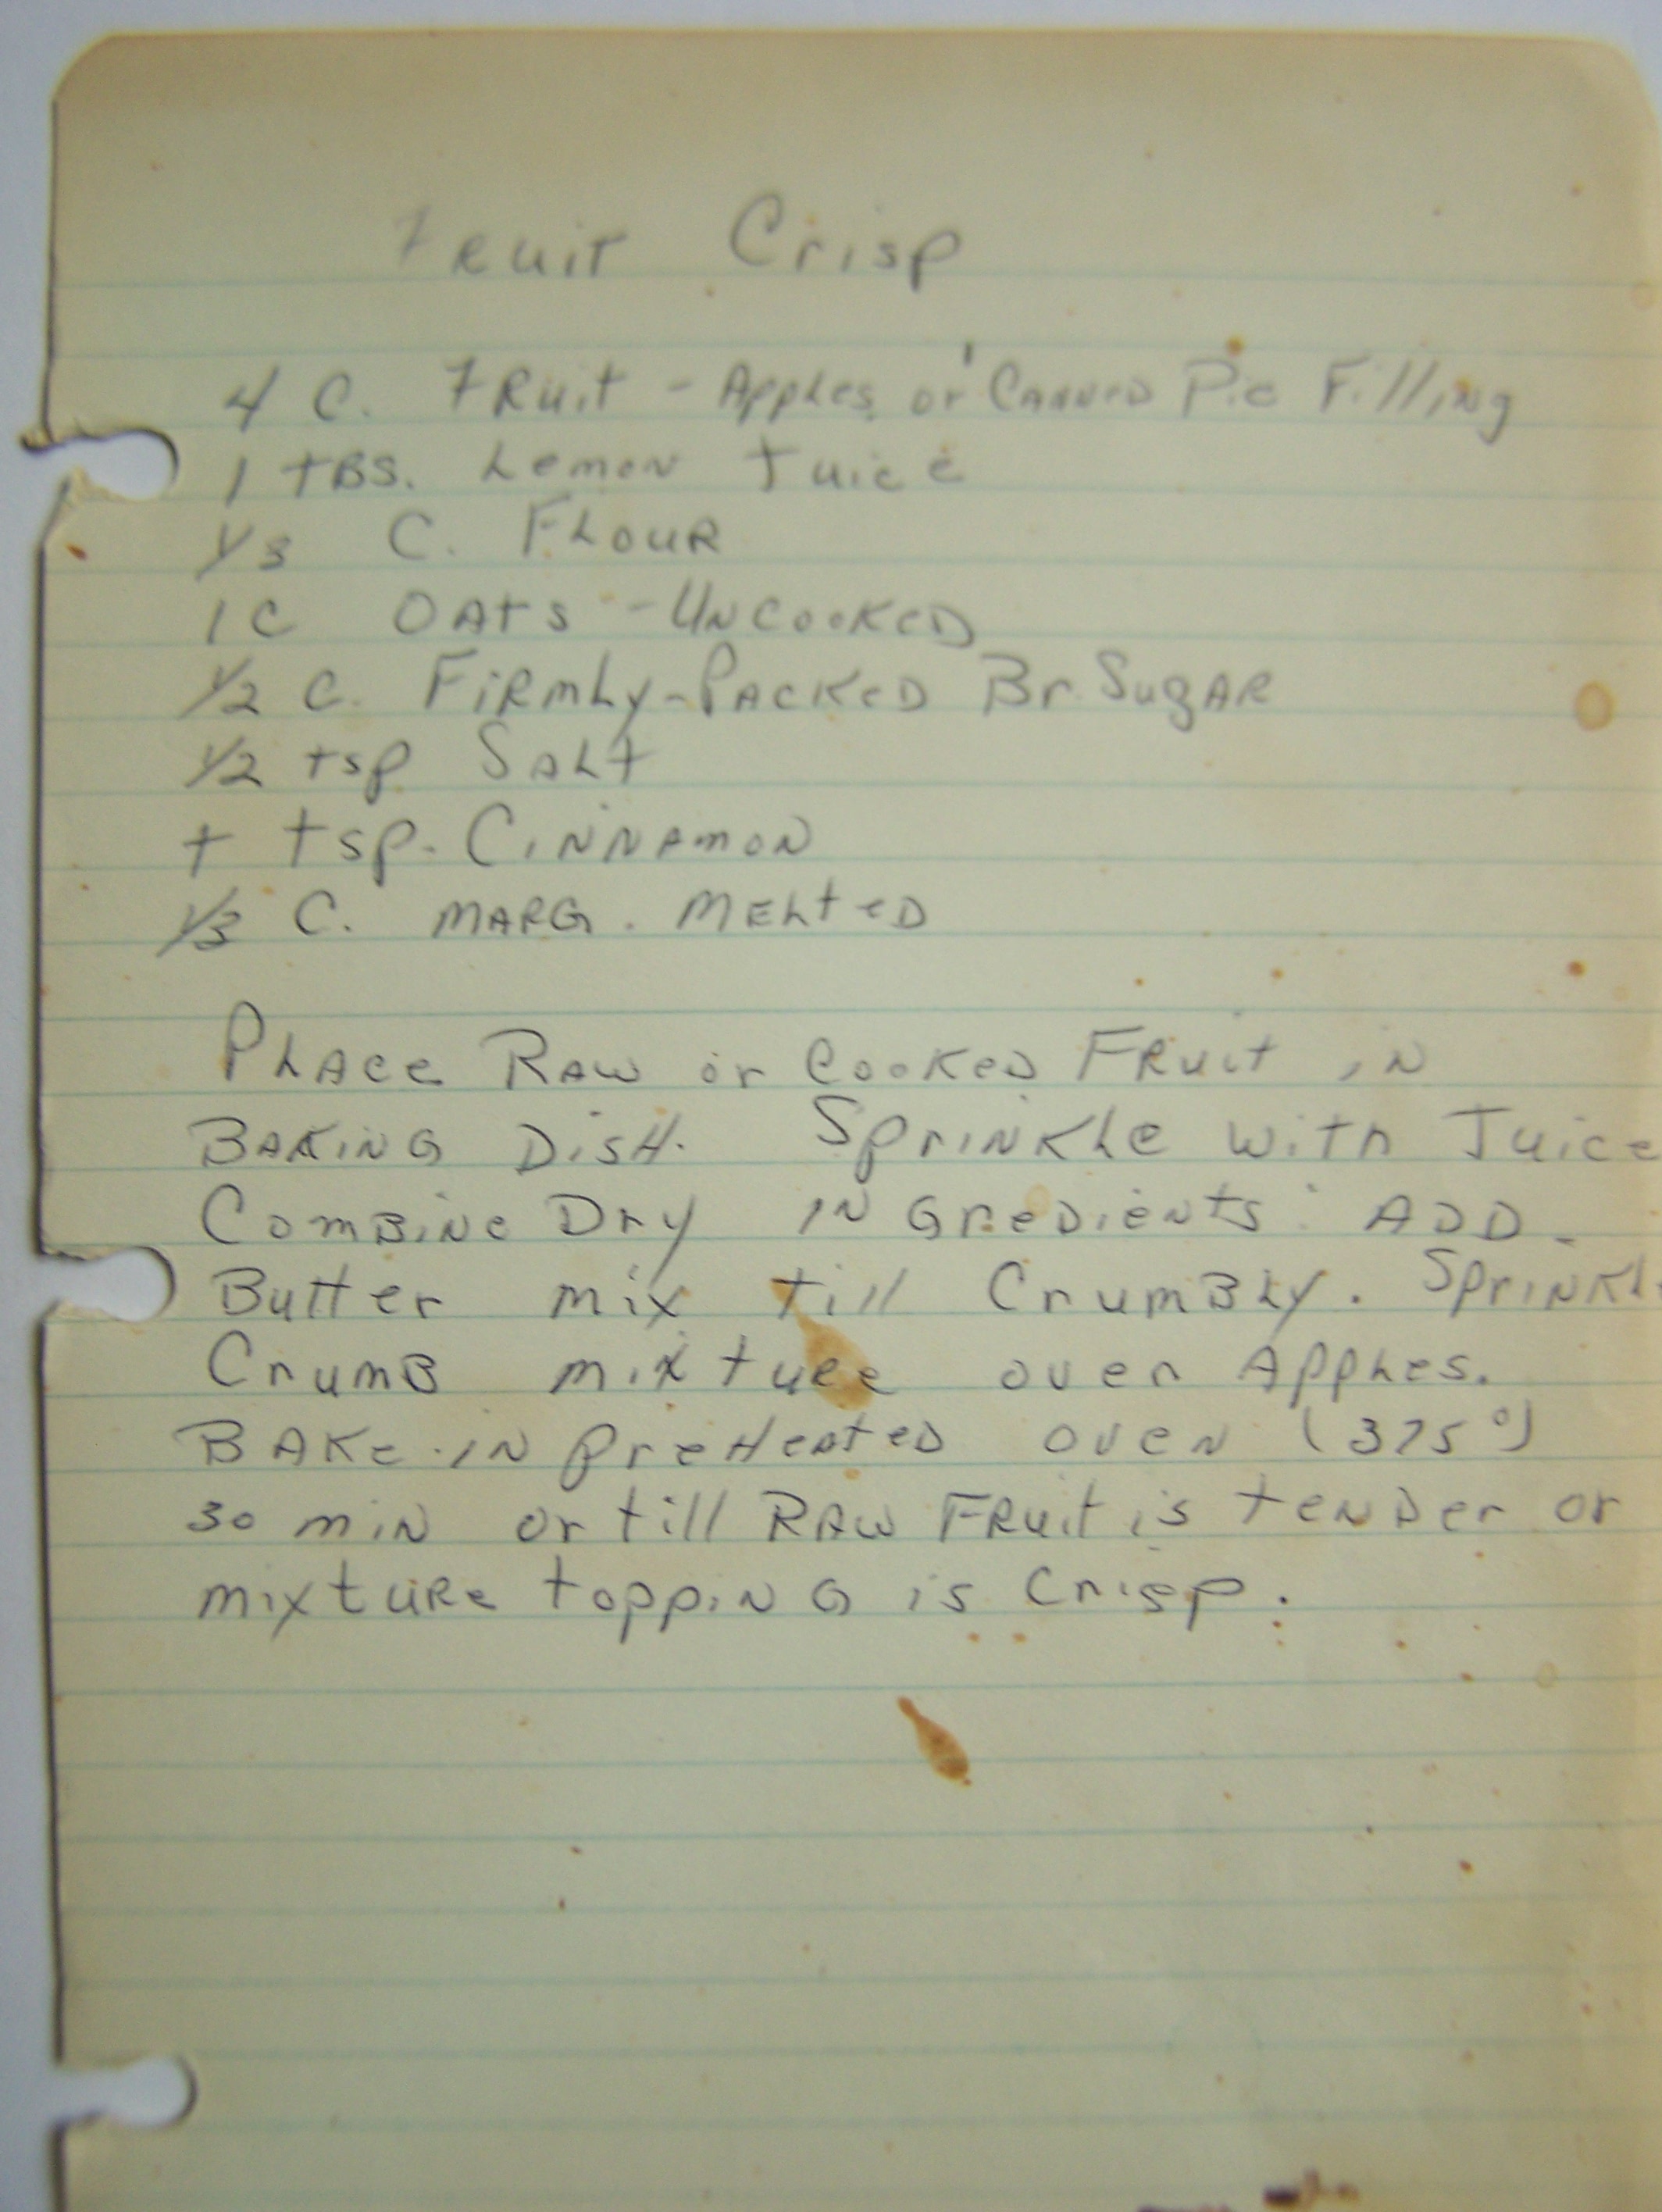 Fruit Crisp
4 C. Fruit - Apples or Canned Pie Filling
1 TBS. Lemon Juice
1/3 C. Flour
1 C Oats - Uncooked
1/2 C. Firmly-Packed Br. Sugar
1/2 tsp Salt
+ tsp. Cinnamon
1/3 C. Marg. Melted
Place Raw or Cooked Fruit in
Baking Dish. Sprinkle with Juice
Combine Dry ingredients. Add
Butter mix till Crumbly. Sprinkl
Crumb mixture over Apples.
Bake in Preheated oven (375°)
30 min or till Raw Fruit is tender or
mixture topping is Crisp.